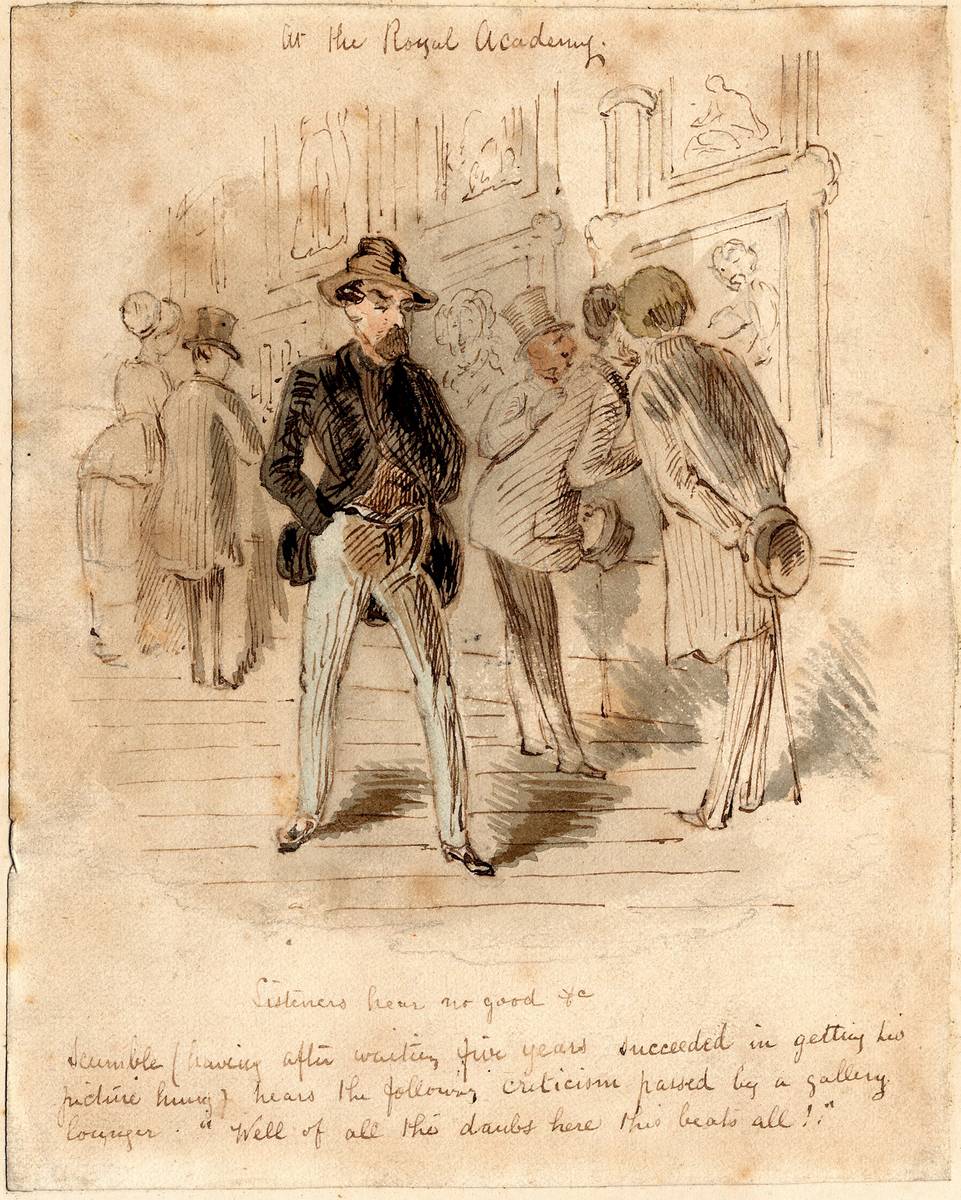 At the Royal Academy.
Listeners hear no good &c
Scumble (having after waiting five years succeeded in getting his
picture hung) hears the following criticism passed by a gallery
lounger. "Well of all the daubs here this beats all!"